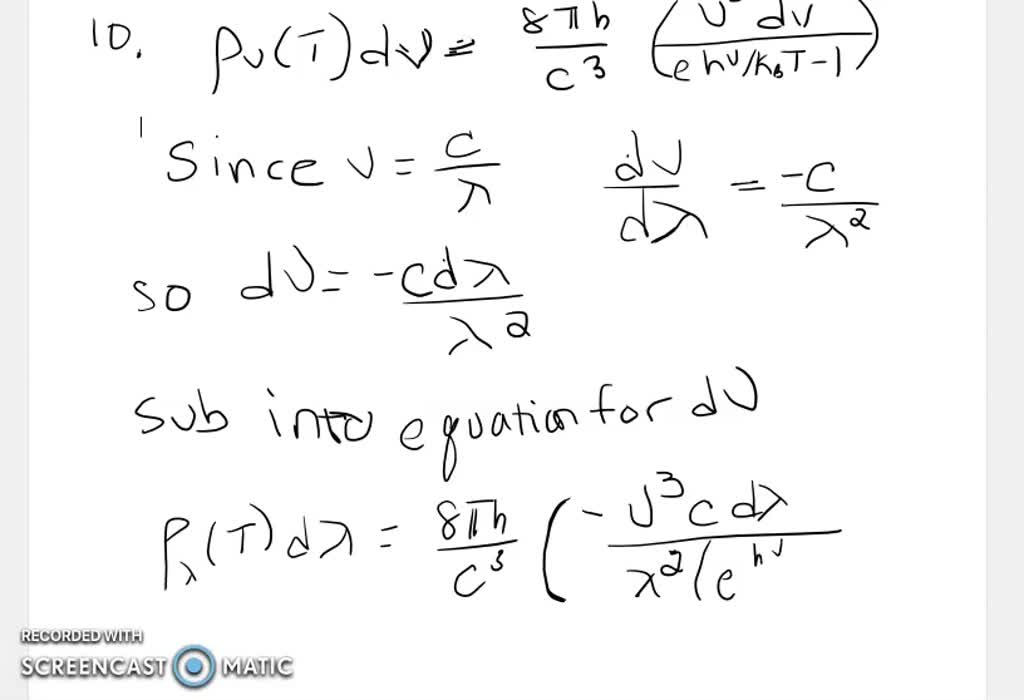 10. ρν(T)dν = 8πh/c³ (ν³dν/(e hν/kBT-1)
Since ν = c/λ dν/dλ = -c/λ²
so dν = -cdλ/λ²
Sub into equation for dν
ρλ(T)dλ = 8πh/c³ (-ν³cdλ/λ²(e^hν
RECORDED WITH
SCREENCAST MATIC